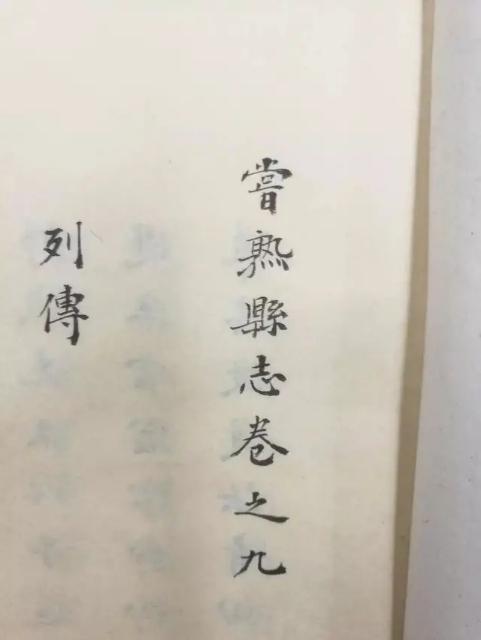 甞熟縣志卷之九
列傳